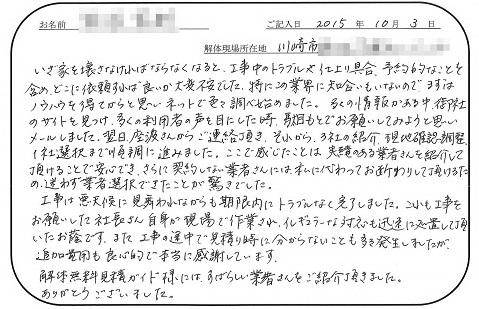 お名前 ご記入日 2015年 10月 3日
解体現場所在地 川崎市
いざ家を壊さなければならなくなると、工事中のトラブルや仕上り具合、予約的なことを
含め、どこに依頼すれば良いか大変不安でした。特にこの業界に知合いもいないので まずは
ノウハウを得てからと思いネットで色々調べ始めました。多くの情報がある中、御社
のサイトを見つけ、多くの利用者の声を目にした時、最初もとでお願いしてみようと思い
メールしました。翌日、渡さんからご連絡頂き、それから、3社の紹介 現地確認・調整
1社選択まで順調に進みました。ここで感じたことは 実績のある業者さんを紹介して
頂けることで安心でき、さらに契約しない業者さんには私に代わってお断わりして頂けるた
め、迷わず業者選択できたことが驚きでした。
工事は悪天候に見舞われながらも期限内にトラブルなく完了しました。これも工事を
お願いした社長さん自身が現場で作業され、イレギュラーな対応も迅速に処置して頂
いたお蔭です。また工事の途中で見積り時に分からないことも多々発生しましたが、
追加費用も良心的で本当に感謝しています。
解体無料見積ガイド様には、すばらしい業者さんをご紹介頂きました。
ありがとうございました。